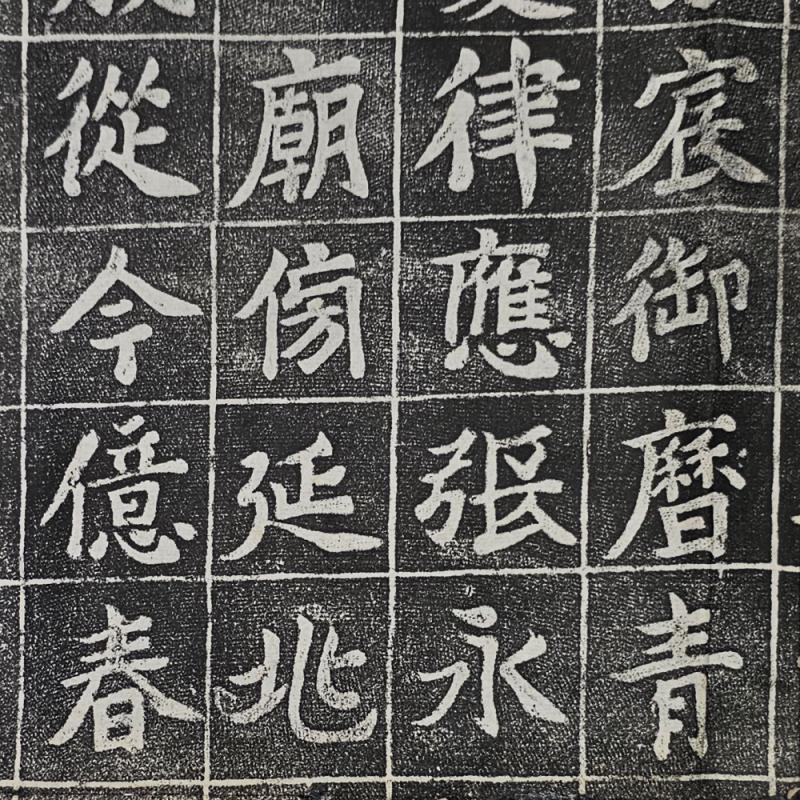 宸御曆青
律應張永
廟傍延兆
從今億春